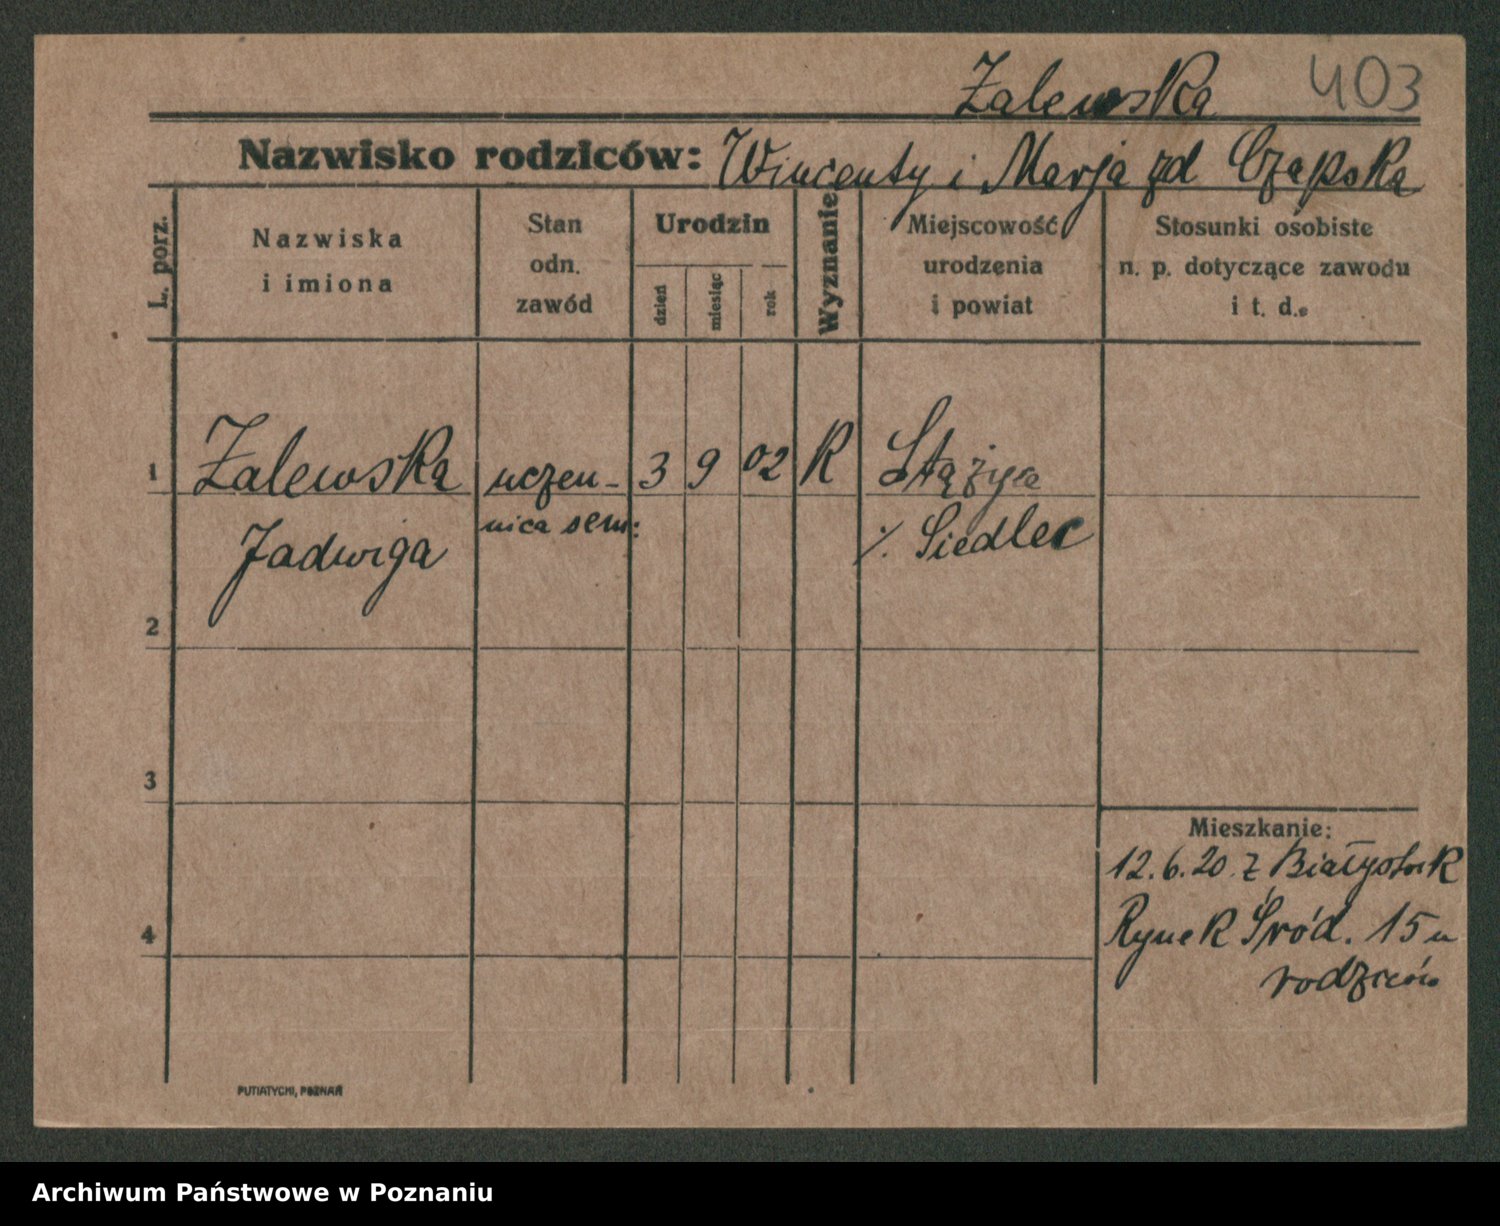 Zalewska 403
Nazwisko rodziców: Wincenty i Marja zd Czapska
L. porz.
Nazwiska
i imiona
Stan
odn.
zawód
Urodzin
dzień
miesiąc
rok
Wyznanie
Miejscowość
urodzenia
i powiat
Stosunki osobiste
n. p. dotyczące zawodu
i t. d.
1 Zalewska uczen- 3 9 02 R Stężyca
Jadwiga nica sem: /. Siedlec
2
3
4
Mieszkanie:
12.6.20. z Białystok
Rynek Śród. 15 u
rodziców
PUTIATYCKI, POZNAŃ
Archiwum Państwowe w Poznaniu